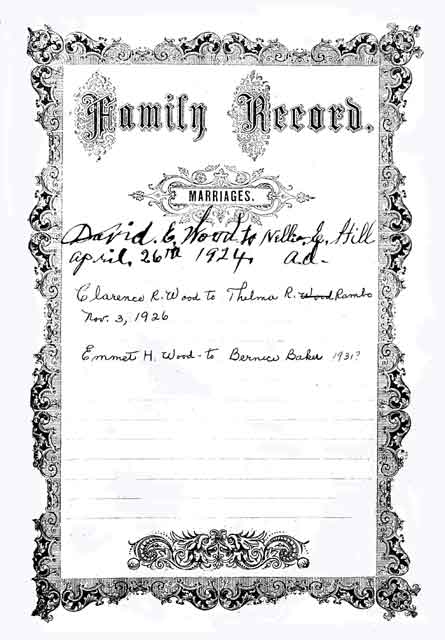 Family Record.
MARRIAGES.
David. E. Wood to Nellie. E. Hill
april. 26TH 1924. a.d.
Clarence R. Wood to Thelma R. Wood Rambo
Nov. 3, 1926
Emmet H. Wood - to Bernice Baker 1931?